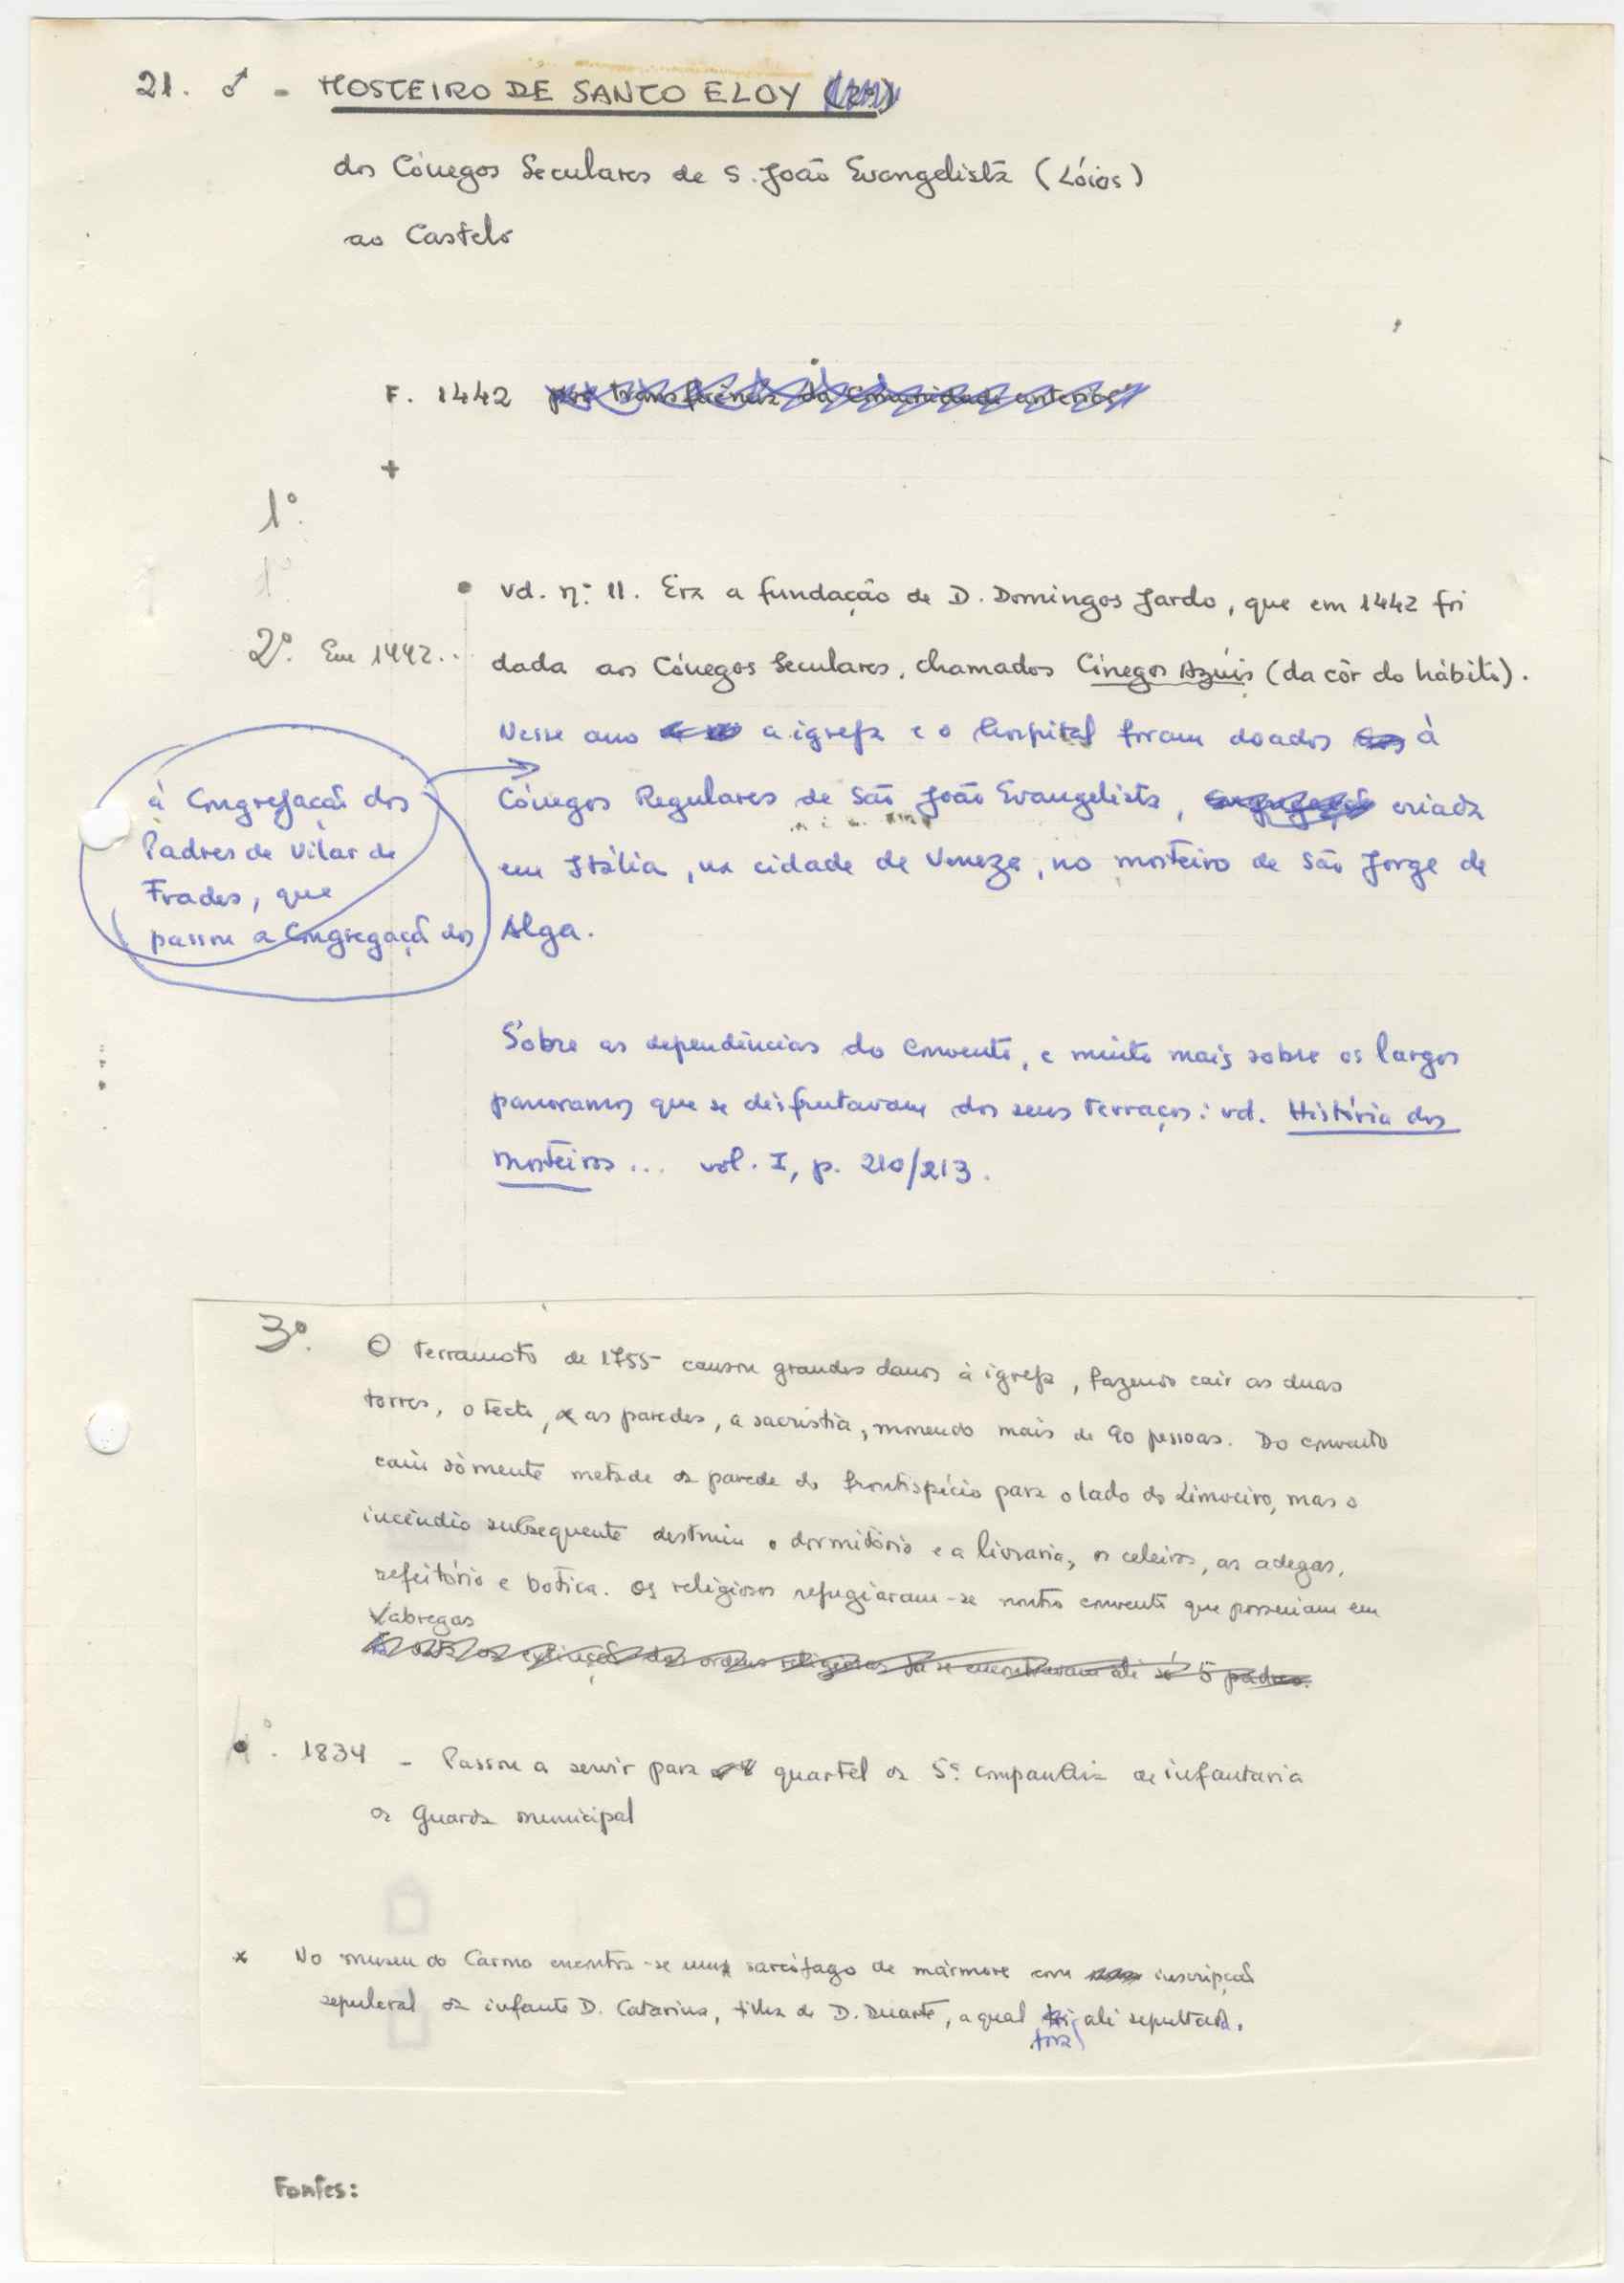 21. ♂ - MOSTEIRO DE SANTO ELOY
dos Cónegos Seculares de S. João Evangelista (Lóios)
ao Castelo
F. 1442 por transferência da comunidade anterior
+
1º.
1º.
• vd. nº 11. Era a fundação de D. Domingos Jardo, que em 1442 foi
2º. Em 1442...
dada aos Cónegos Seculares, chamados Cónegos Azúis (da côr do hábito).
Nesse ano a igreja e o hospital foram doados aos à
Cónegos Regulares de São João Evangelista, congregação criada
em Itália, na cidade de Veneza, no mosteiro de São Jorge de
Alga.
à Congregação dos
Padres de Vilar de
Frades, que
passou a Congregação dos
Sobre as dependências do convento, e muito mais sobre os largos
panoramas que se desfrutavam dos seus terraços: vd. História dos
Mosteiros... vol. I, p. 210/213.
3º. O terramoto de 1755 causou grandes danos à igreja, fazendo cair as duas
torres, o tecto, as paredes, a sacristia, morrendo mais de 90 pessoas. Do convento
caiu sòmente metade da parede do frontispício para o lado do Limoeiro, mas o
incêndio subsequente destruiu o dormitório e a livraria, os celeiros, as adegas,
refeitório e botica. Os religiosos refugiaram-se noutro convento que possuiam em
Xabregas
extinção das ordens religiosas já se encontravam ali só 5 padres.
4º. 1834 - Passou a servir para quartel da 5ª companhia de infantaria
da Guarda municipal
x No museu do Carmo encontra-se um sarcófago de mármore com inscripção
sepulcral da infanta D. Catarina, filha de D. Duarte, a qual foi ali sepultada.
fora
Fontes: